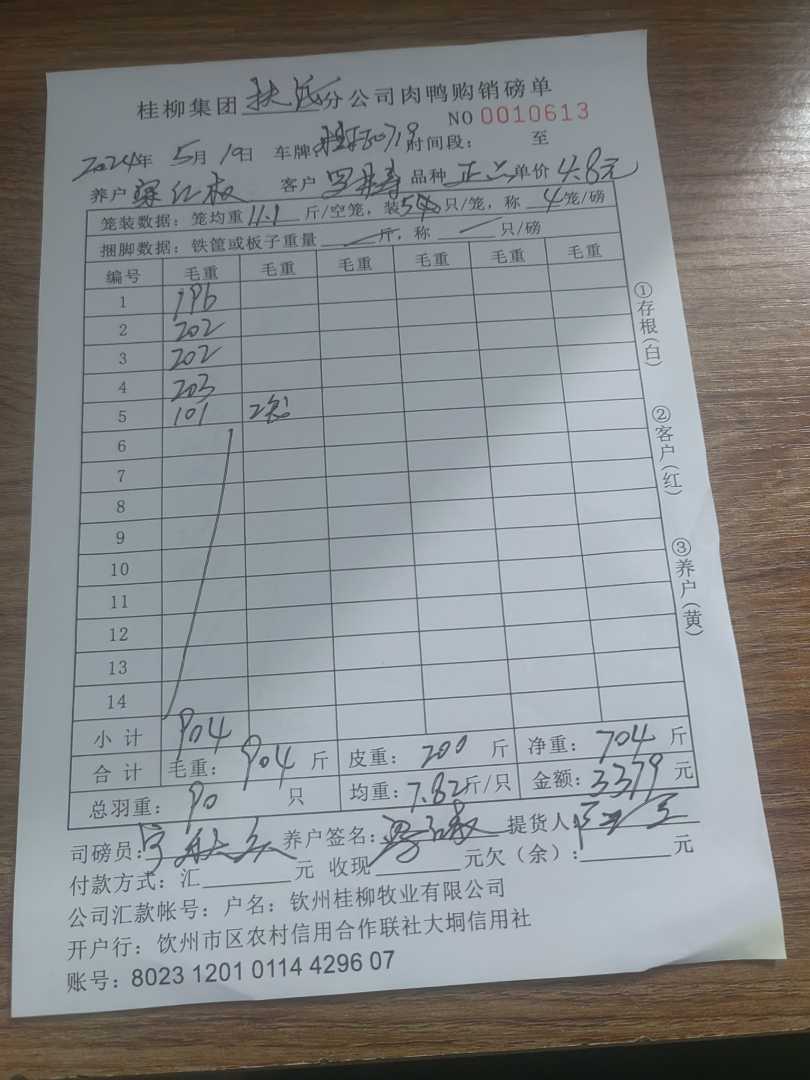 桂柳集团扶绥分公司肉鸭购销磅单
NO 0010613
2024年 5月 19日 车牌: 时间段: 至
养户 梁红 客户 罗 品种 正 单价 4.8元
笼装数据：笼均重 11.1 斤/空笼，装 5 只/笼，称 4 笼/磅
捆脚数据：铁筐或板子重量 斤，称 只/磅
编号 毛重 毛重 毛重 毛重 毛重 毛重
1 196
2 202
3 202
4 203
5 101 2笼
6
7
8
9
10
11
12
13
14
小计 904
合计 毛重： 904 斤 皮重： 200 斤 净重： 704 斤
总羽重： 90 只 均重： 7.82 斤/只 金额： 3379 元
司磅员： 养户签名： 提货人：
付款方式：汇 元 收现 元欠（余）： 元
公司汇款帐号：户名：钦州桂柳牧业有限公司
开户行：饮州市区农村信用合作联社大垌信用社
账号：8023 1201 0114 4296 07
①存根(白)
②客户(红)
③养户(黄)